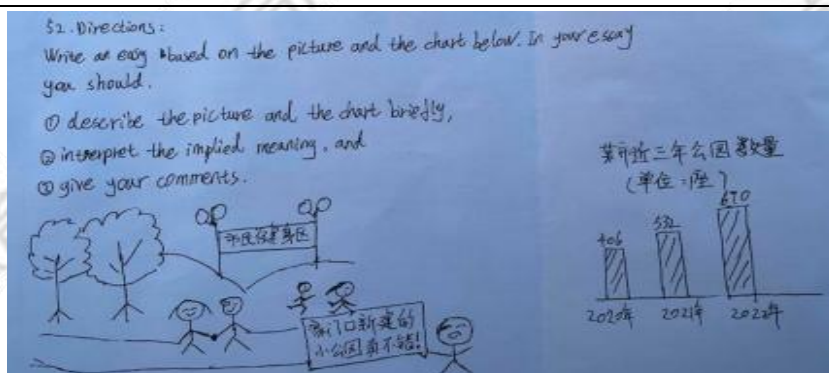 52. Directions:
Write an easy based on the picture and the chart below. In your essay
you should.
① describe the picture and the chart briefly,
② interpret the implied meaning, and
③ give your comments.
市民健身区
家门口新建的
小公园真不错!
某市近三年公园数量
(单位:座)
406
532
670
2020年 2021年 2022年